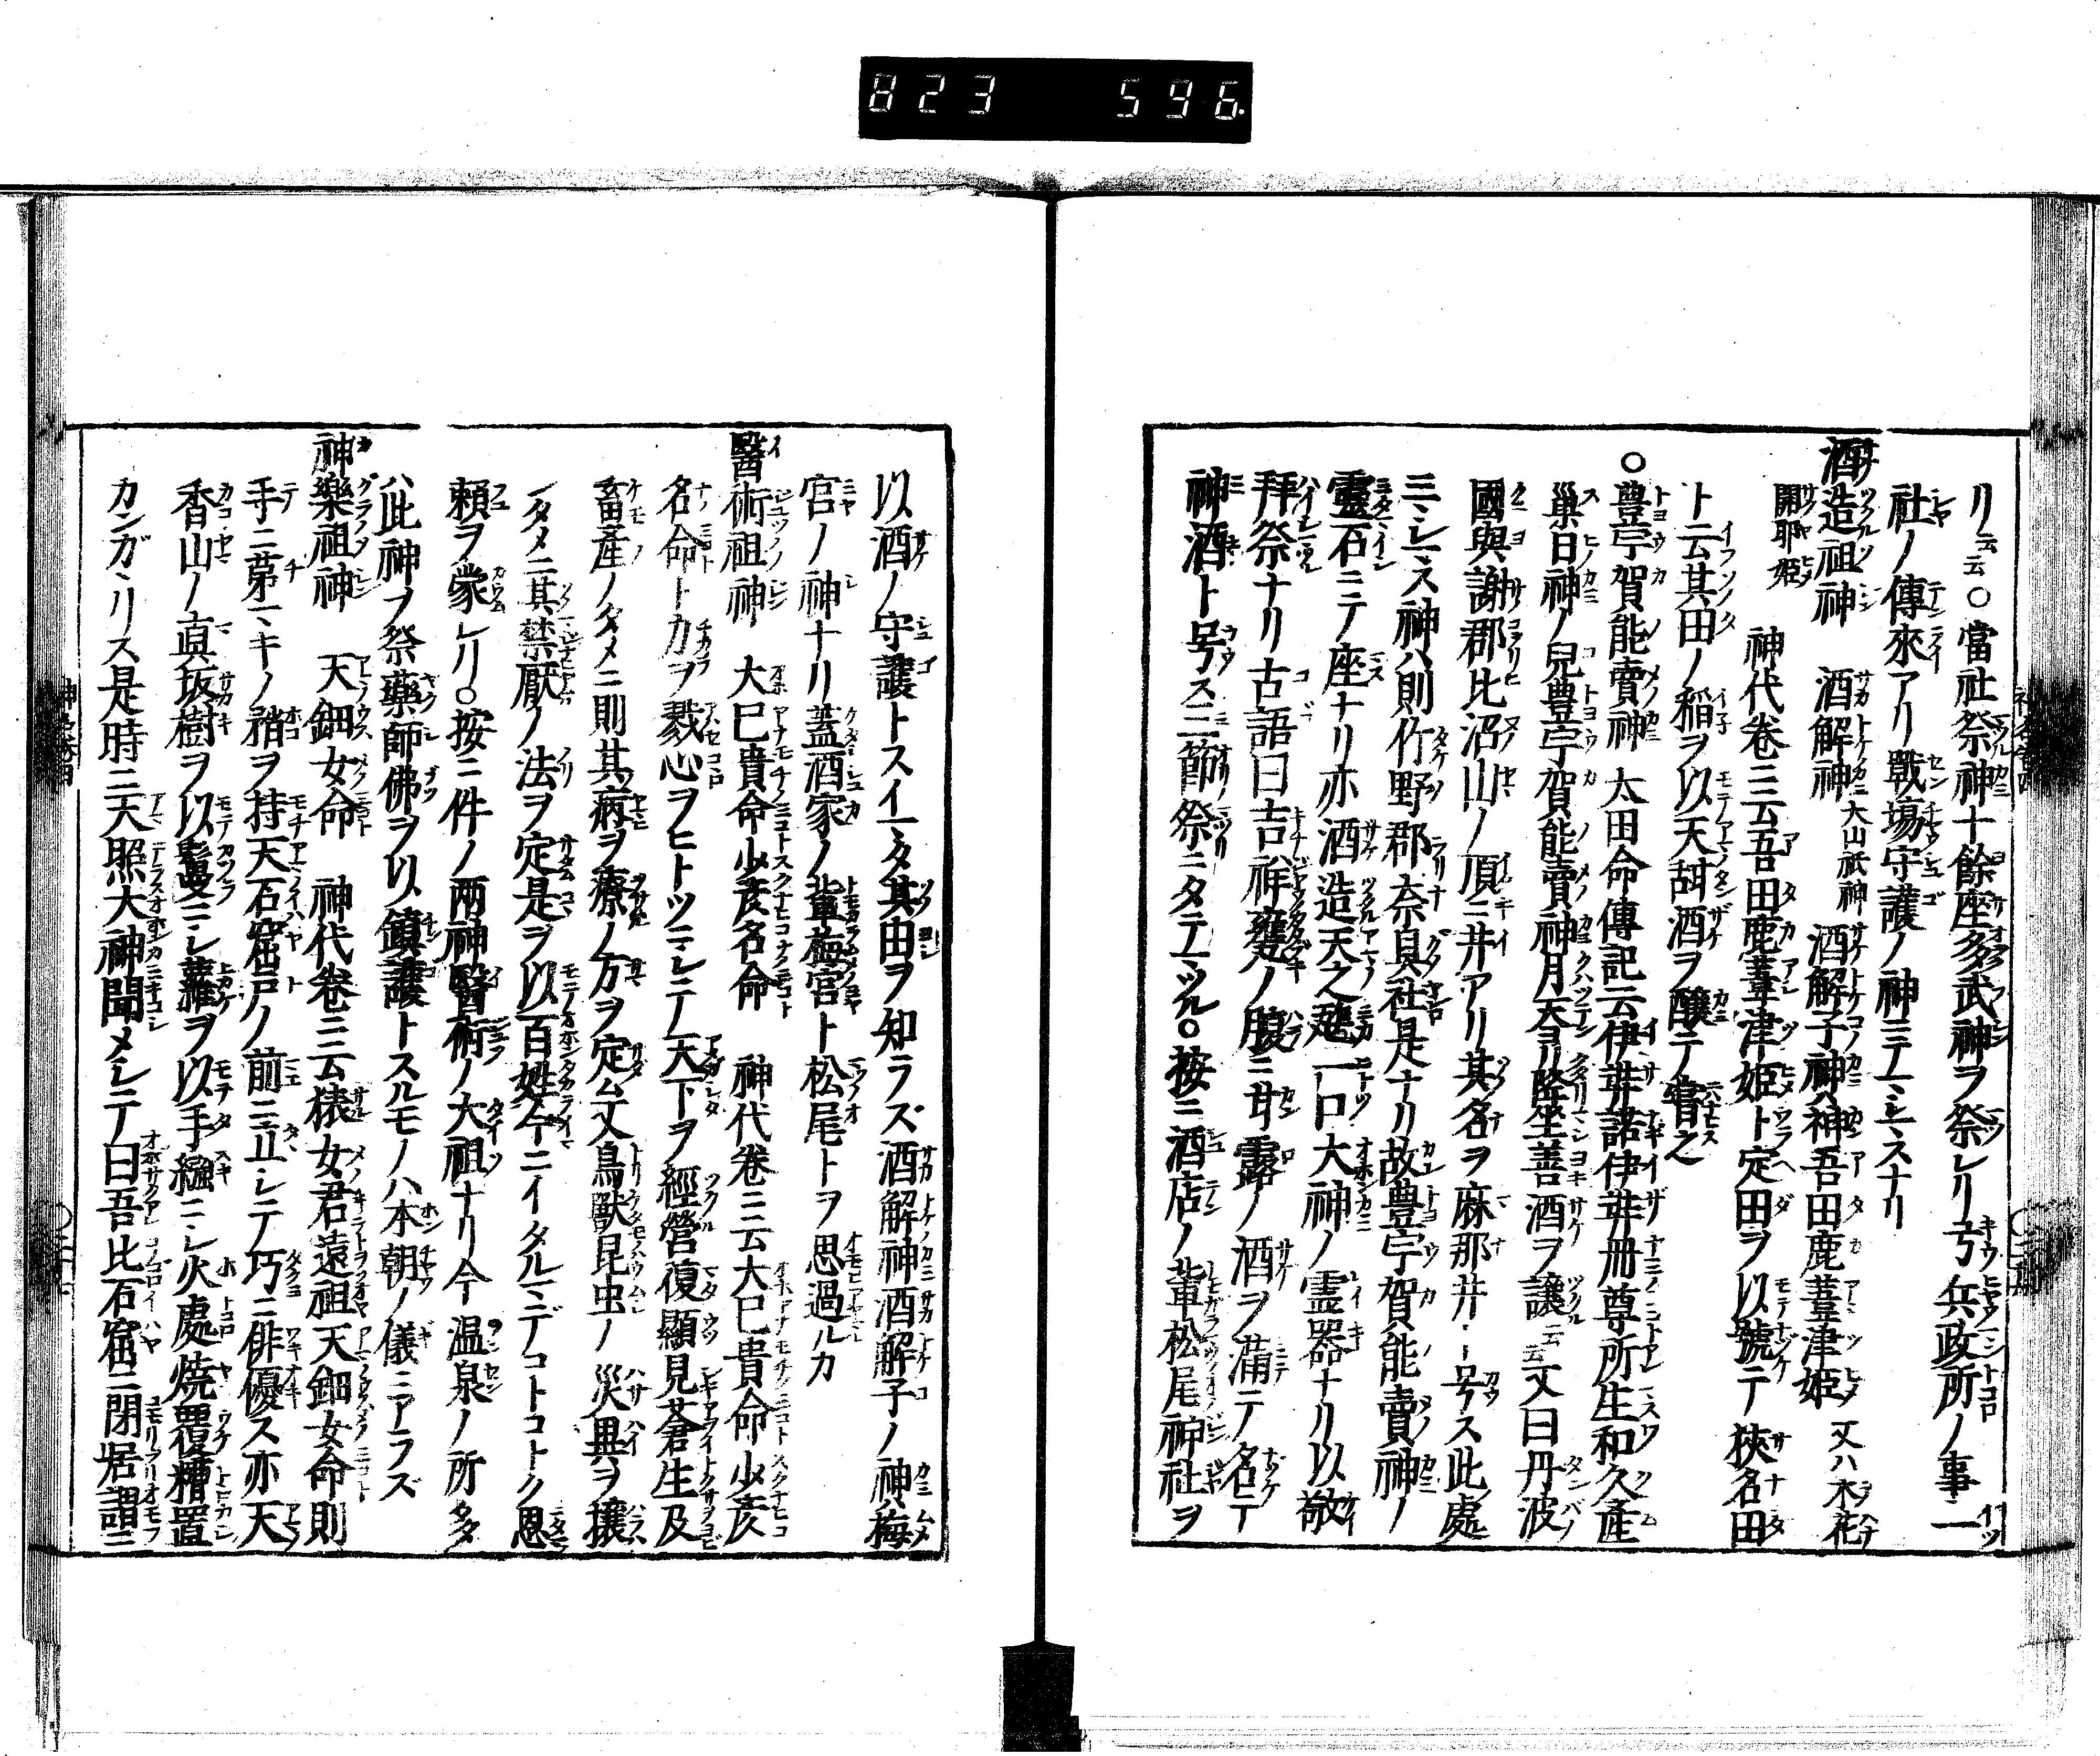 823 596
リ云云○當社祭神十餘座多武神ヲ祭レリ弓兵政所ノ事一
社ノ傳來アリ戰場守護ノ神ニテマシマスナリ
酒造祖神 酒解神大山祇神 酒解子神ハ神吾田鹿葦津姫 又ハ木花
開耶姫 神代卷ニ云吾田鹿葦津姫ト定田ヲ以號テ狹名田
ト云其田ノ稲ヲ以天甜酒ヲ釀テ嘗之
○豊宇賀能賣神 太田命傳記云伊弉諾伊弉冊尊所生和久産
巣日神ノ兒豊宇賀能賣神月天ヨリ降坐善酒ヲ譲云云又曰丹波
國與謝郡比沼山ノ頂ニ井アリ其名ヲ麻那井ト号ス此處
ニマシマス神ハ則竹野郡奈具社是ナリ故豊宇賀能賣神ノ
靈石ニテ座ナリ亦酒造天之𤭖一口大神ノ霊器ナリ以敬
拜祭ナリ古語曰吉祥甕ノ腹ニ甘露ノ酒ヲ満テ名テ
神酒ト号ス三節祭ニタテマツル○按ニ酒店ノ輩松尾神社ヲ
以酒ノ守護トスイマタ其由ヲ知ラズ酒解神酒解子ノ神ハ梅
宮ノ神ナリ蓋酒家ノ輩梅宮ト松尾トヲ思過ルカ
醫術祖神 大巳貴命少彦名命 神代卷ニ云大巳貴命少彦
名命ト力ヲ戮心ヲヒトツニシテ天下ヲ經營復顯見蒼生及
畜産ノタメニ則其病ヲ療ノ方ヲ定ム又鳥獣昆虫ノ災異ヲ攘
ンタメニ其禁厭ノ法ヲ定是ヲ以百姓今ニイタルマデコトコトク恩
頼ヲ蒙レリ○按ニ件ノ兩神醫術ノ大祖ナリ今温泉ノ所多
ハ此神ヲ祭藥師佛ヲ以鎮護トスルモノハ本朝ノ儀ニアラズ
神樂祖神 天鈿女命 神代卷ニ云猿女君遠祖天鈿女命則
手ニ茅マキノ矟ヲ持天石窟戸ノ前ニ立シテ巧ニ俳優ス亦天
香山ノ真坂樹ヲ以鬘ニシ蘿ヲ以手繦ニシ火處焼覆糟置
カンガヽリス是時ニ天照大神聞メシテ曰吾比石窟ニ閉居謂ニ